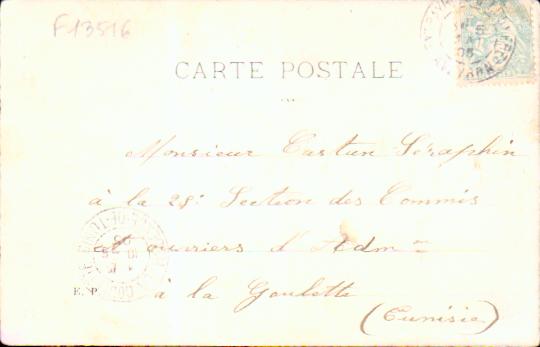 F13516
CARTE POSTALE
Monsieur Castan Séraphin
à la 28e Section des Commis
et ouvriers d'Adm on
à la Goulette
(Tunisie)
E. P.